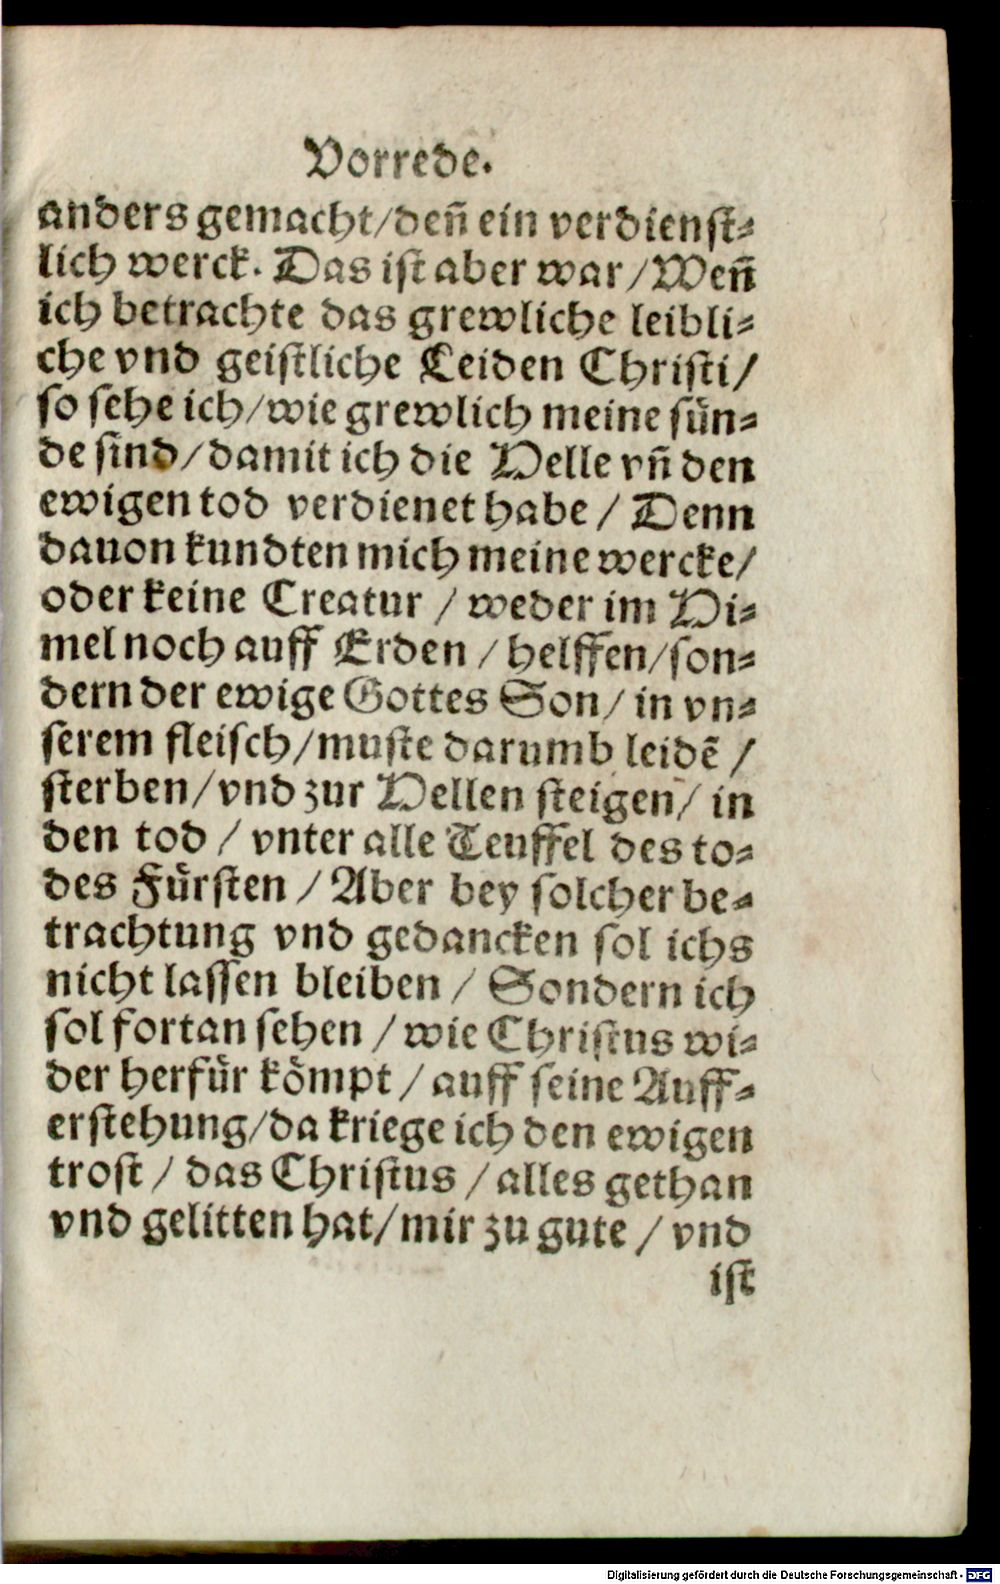 Vorrede.
anders gemacht/deñ ein verdienst⸗
lich werck. Das ist aber war/Weñ
ich betrachte das grewliche leibli⸗
che vnd geistliche Leiden Christi/
so sehe ich/wie grewlich meine sün⸗
de sind/damit ich die Helle vñ den
ewigen tod verdienet habe / Denn
dauon kundten mich meine wercke/
oder keine Creatur / weder im Hi⸗
mel noch auff Erden / helffen/son⸗
dern der ewige Gottes Son/ in vn⸗
serem fleisch/muste darumb leidẽ /
sterben/vnd zur Hellen steigen/ in
den tod / vnter alle Teuffel des to⸗
des Fürsten / Aber bey solcher be⸗
trachtung vnd gedancken sol ichs
nicht lassen bleiben / Sondern ich
sol fortan sehen / wie Christus wi⸗
der herfür kömpt / auff seine Auff⸗
erstehung/da kriege ich den ewigen
trost / das Christus / alles gethan
vnd gelitten hat/mir zu gute / vnd
ist
Digitalisierung gefördert durch die Deutsche Forschungsgemeinschaft - DFG